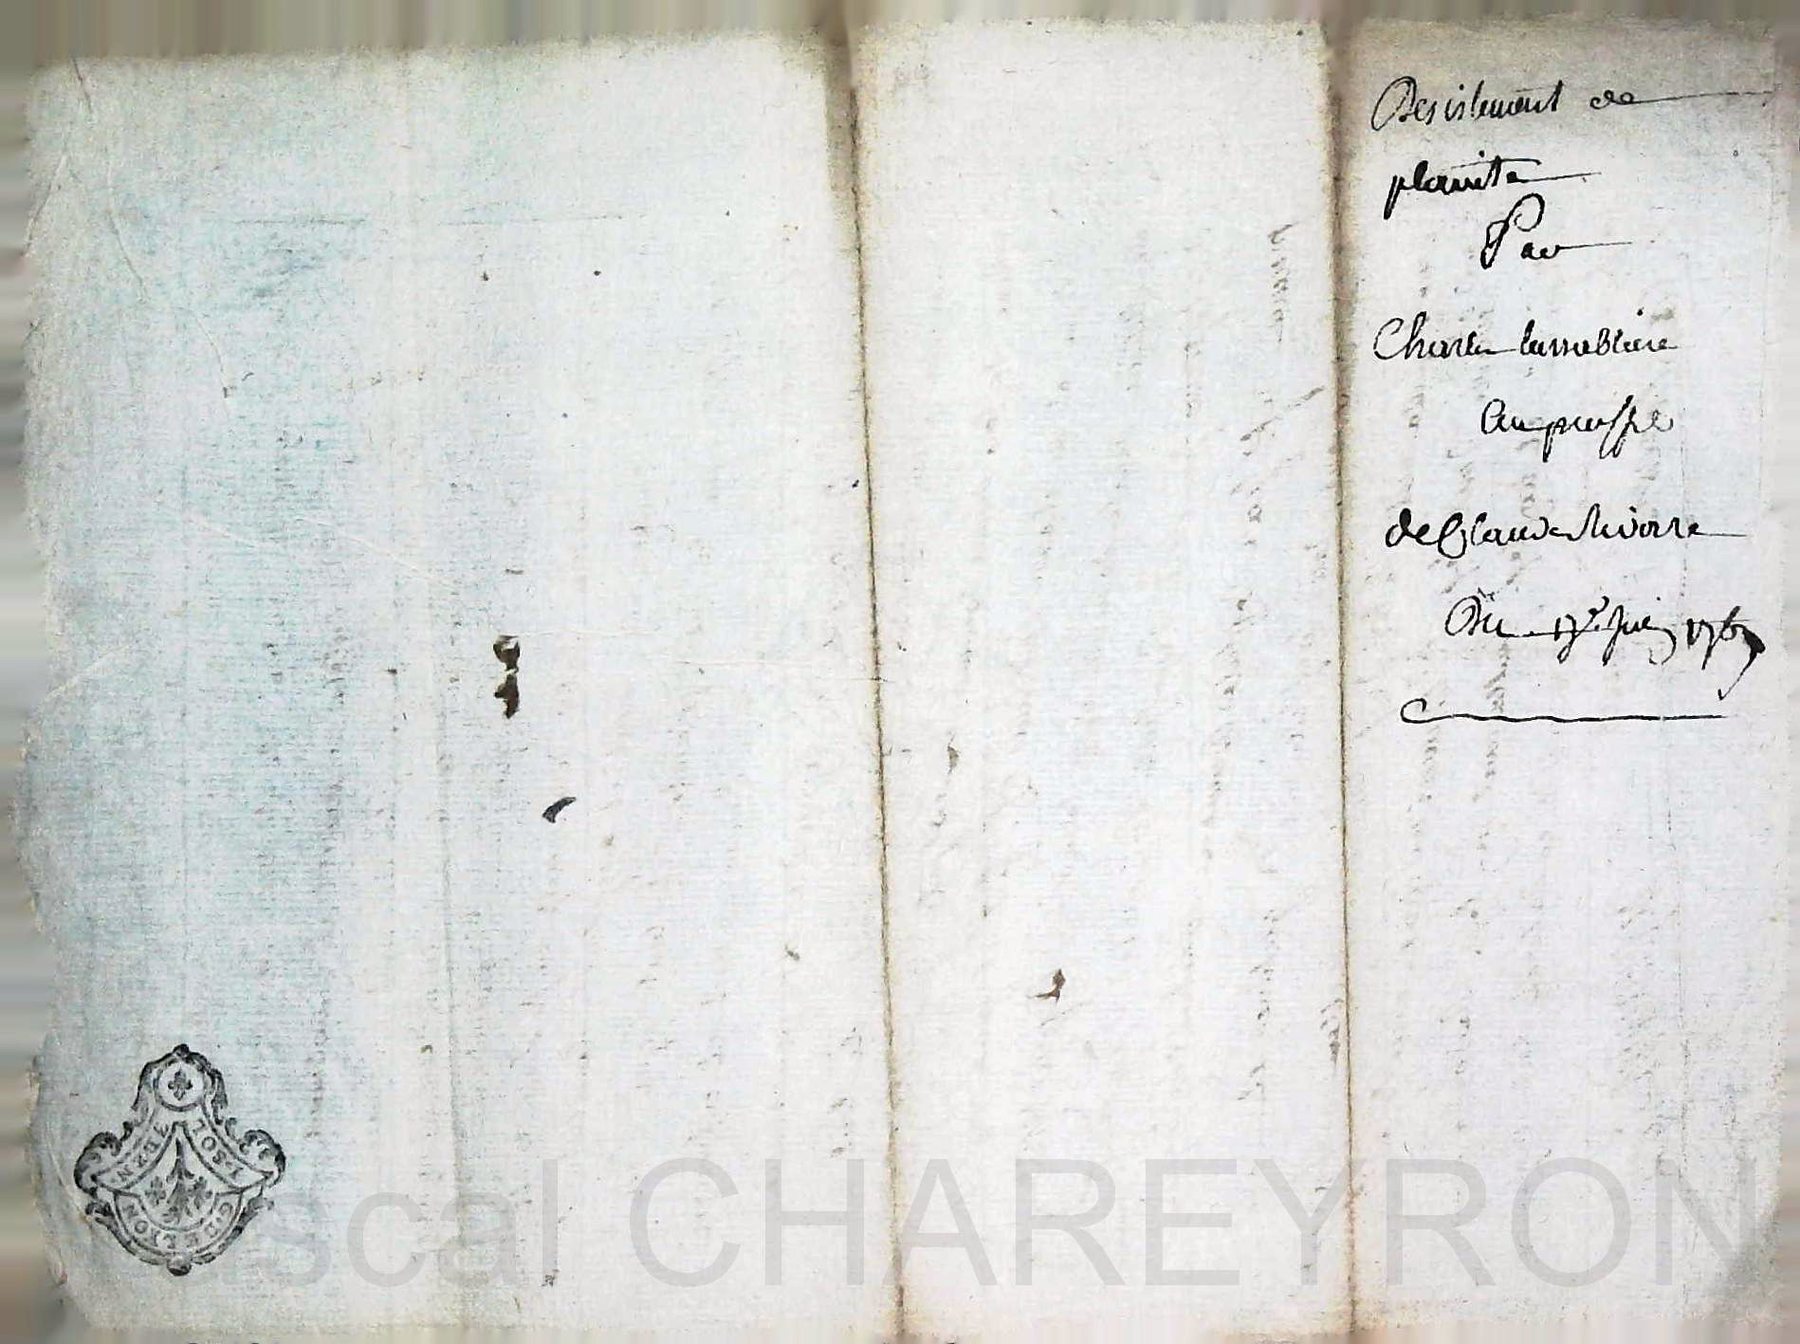 Desistement de
plainte
Par
Charle lassabliere
Au proffit
de Claude Rivoire
Du 17e. Juin 1767
GN DE LYON
Pascal CHAREYRON